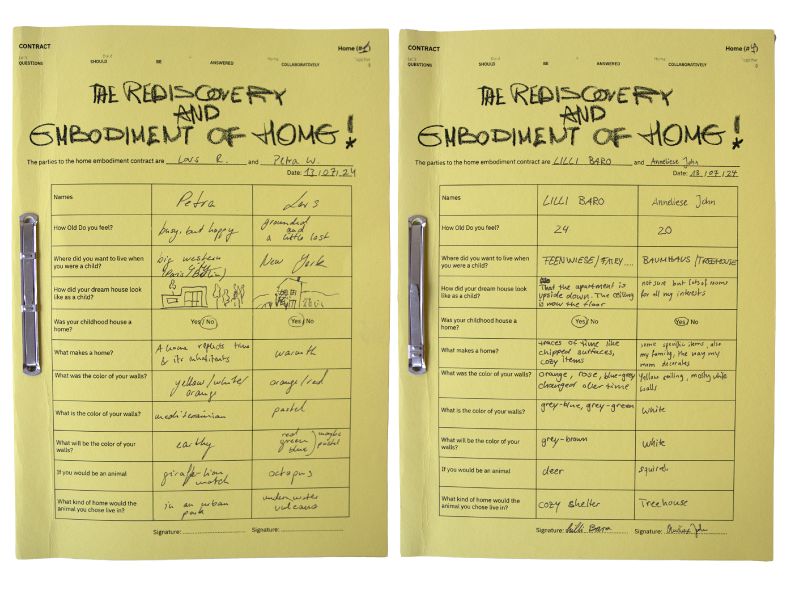 CONTRACT
Home (#1)
QUESTIONS SHOULD BE ANSWERED COLLABORATIVELY
THE REDISCOVERY
AND
EMBODIMENT OF HOME!
The parties to the home embodiment contract are Lars R. and Petra W.
Date: 13/07/24
Names Petra Lars
How Old Do you feel? busy, but happy grounded and a little lost
Where did you want to live when you were a child? big western city (Paris/Berlin) New York
How did your dream house look like as a child?
Was your childhood house a home? Yes/No Yes/No
What makes a home? A home reflects time & its inhabitants warmth
What was the color of your walls? yellow/white/orange orange/red
What is the color of your walls? mediterainian pastel
What will be the color of your walls? earthy red green blue maybe pastel
If you would be an animal giraffe-lion match octopus
What kind of home would the animal you chose live in? in an urban park underwater vulcano
Signature: Signature:
CONTRACT
Home (#4)
QUESTIONS SHOULD BE ANSWERED COLLABORATIVELY
THE REDISCOVERY
AND
EMBODIMENT OF HOME!
The parties to the home embodiment contract are LILLI BARO and Anneliese John
Date: 13/07/24
Names LILLI BARO Anneliese John
How Old Do you feel? 24 20
Where did you want to live when you were a child? FEENWIESE/FAIRY.... BAUMHAUS/TREEHOUSE
How did your dream house look like as a child? That the apartment is upside down. The ceiling is now the floor not sure but lots of rooms for all my interests
Was your childhood house a home? Yes/No Yes/No
What makes a home? traces of time like chipped surfaces, cozy items some specific items, also my family, the way my mom decorates
What was the color of your walls? orange, rose, blue-grey changed over time Yellow ceiling, mostly white walls
What is the color of your walls? grey-blue, grey-green white
What will be the color of your walls? grey-brown white
If you would be an animal deer squirrel
What kind of home would the animal you chose live in? cozy shelter Treehouse
Signature: Lilli Baro Signature: